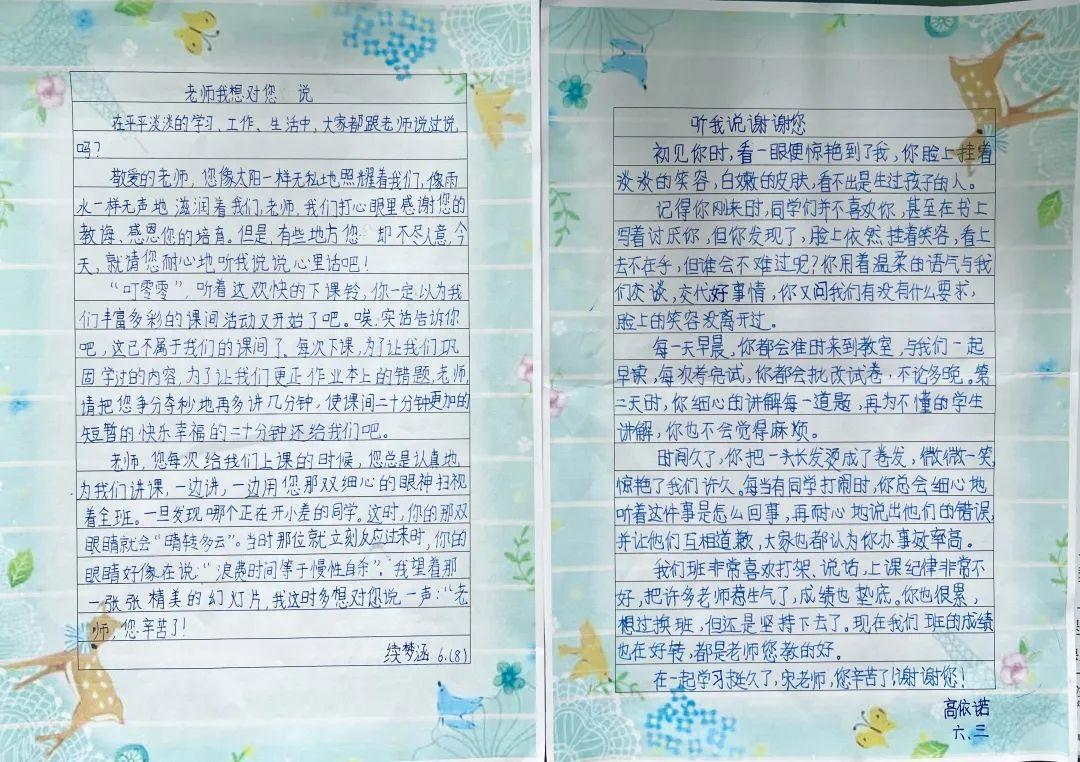 老师我想对您 说
在平平淡淡的学习、工作、生活中,大家都跟老师说过说
吗?
敬爱的老师,您像太阳一样无私地照耀着我们,像雨
水一样无声地滋润着我们,老师,我们打心眼里感谢您的
教诲、感恩您的培育。但是,有些地方您却不尽人意,今
天,就请您耐心地听我说说心里话吧!
“叮零零”,听着这欢快的下课铃,你一定以为我
们丰富多彩的课间活动又开始了吧。唉,实话告诉你
吧,这已不属于我们的课间了。每次下课,为了让我们巩
固学过的内容,为了让我们更正作业本上的错题,老师,
请把您争分夺秒地再多讲几分钟,使课间二十分钟更加的
短暂的快乐幸福的二十分钟还给我们吧。
老师,您每次给我们上课的时候,您总是认真地
为我们讲课,一边讲,一边用您那双细心的眼神扫视
着全班。一旦发现哪个正在开小差的同学。这时,你的那双
眼睛就会“晴转多云”。当时那位就立刻反应过来时,你的
眼睛好像在说:“浪费时间等于慢性自杀”。我望着那
一张张精美的幻灯片,我这时多想对您说一声:“老
师,您辛苦了!
续梦涵 6.(8)
听我说谢谢您
初见你时,看一眼便惊艳到了我,你脸上挂着
淡淡的笑容,白嫩的皮肤,看不出是生过孩子的人。
记得你刚来时,同学们并不喜欢你,甚至在书上
写着讨厌你,但你发现了,脸上依然挂着笑容,看上
去不在乎,但谁会不难过呢?你用着温柔的语气与我
们交谈,交代好事情,你又问我们有没有什么要求,
脸上的笑容没离开过。
每一天早晨,你都会准时来到教室,与我们一起
早读,每次考完试,你都会批改试卷,不论多晚。第
二天时,你细心的讲解每一道题,再为不懂的学生
讲解,你也不会觉得麻烦。
时间久了,你把一头长发烫成了卷发,微微一笑,
惊艳了我们许久。每当有同学打闹时,你总会细心地
听着这件事是怎么回事,再耐心地说出他们的错误,
并让他们互相道歉,大家也都认为你办事效率高。
我们班非常喜欢打架、说话,上课纪律非常不
好,把许多老师惹生气了,成绩也垫底。你也很累,
想过换班,但还是坚持下去了。现在我们班的成绩
也在好转,都是老师您教的好。
在一起学习挺久了,宋老师,您辛苦了!谢谢您!
高依诺
六、三